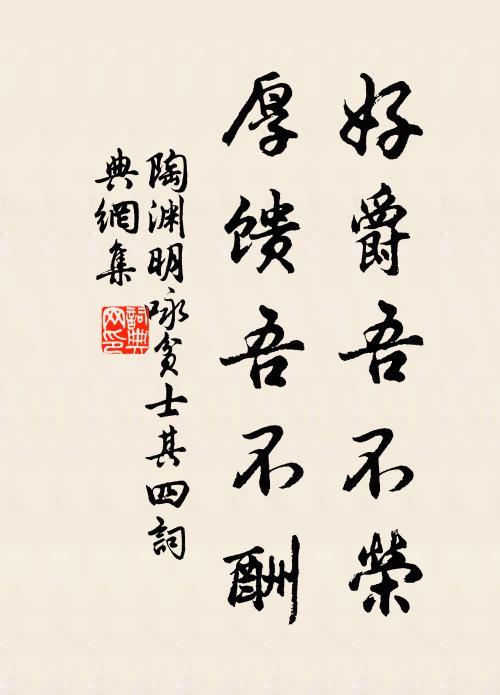 好爵吾不榮
厚馈吾不酬
陶渊明咏贫士其四詞
典網集
詞典
网印